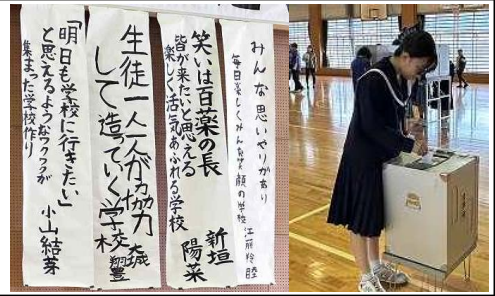 みんな思いやりがあり
毎日楽しくみんな笑顔の学校
笑いは百薬の長
皆が来たいと思える
楽しく活気あふれる学校
新垣
陽菜
生徒一人一人が協力
して造っていく学校
「明日も学校に行きたい」
と思えるようなワクワクが
集まった学校作り
小山結芽